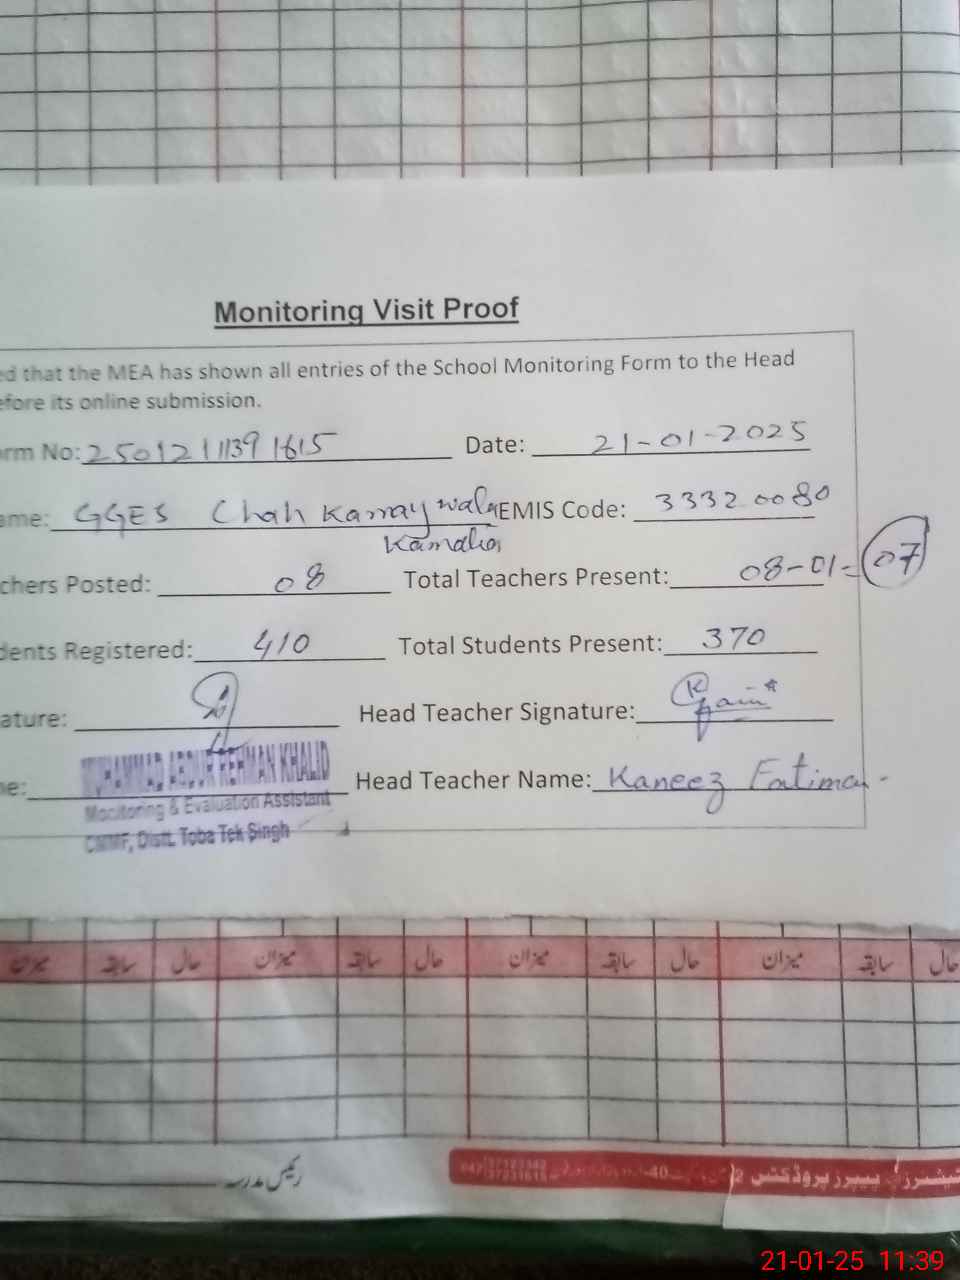 Monitoring Visit Proof
ed that the MEA has shown all entries of the School Monitoring Form to the Head
efore its online submission.
orm No: 2501211391615 Date: 21-01-2025
ame: GGES Chah Karray wala EMIS Code: 33320080
Kamalia
chers Posted: 08 Total Teachers Present: 08-01=07
dents Registered: 410 Total Students Present: 370
ature: Head Teacher Signature:
me: MUHAMMAD ABDUR REHMAN KHALID Head Teacher Name: Kaneez Fatima.
Monitoring & Evaluation Assistant
CMMF, Distt. Toba Tek Singh
میزان سابقہ حال میزان سابقہ حال میزان سابقہ حال میزان سابقہ حال
رئیس مدرسہ
پیپرز پروڈکٹس
21-01-25 11:39